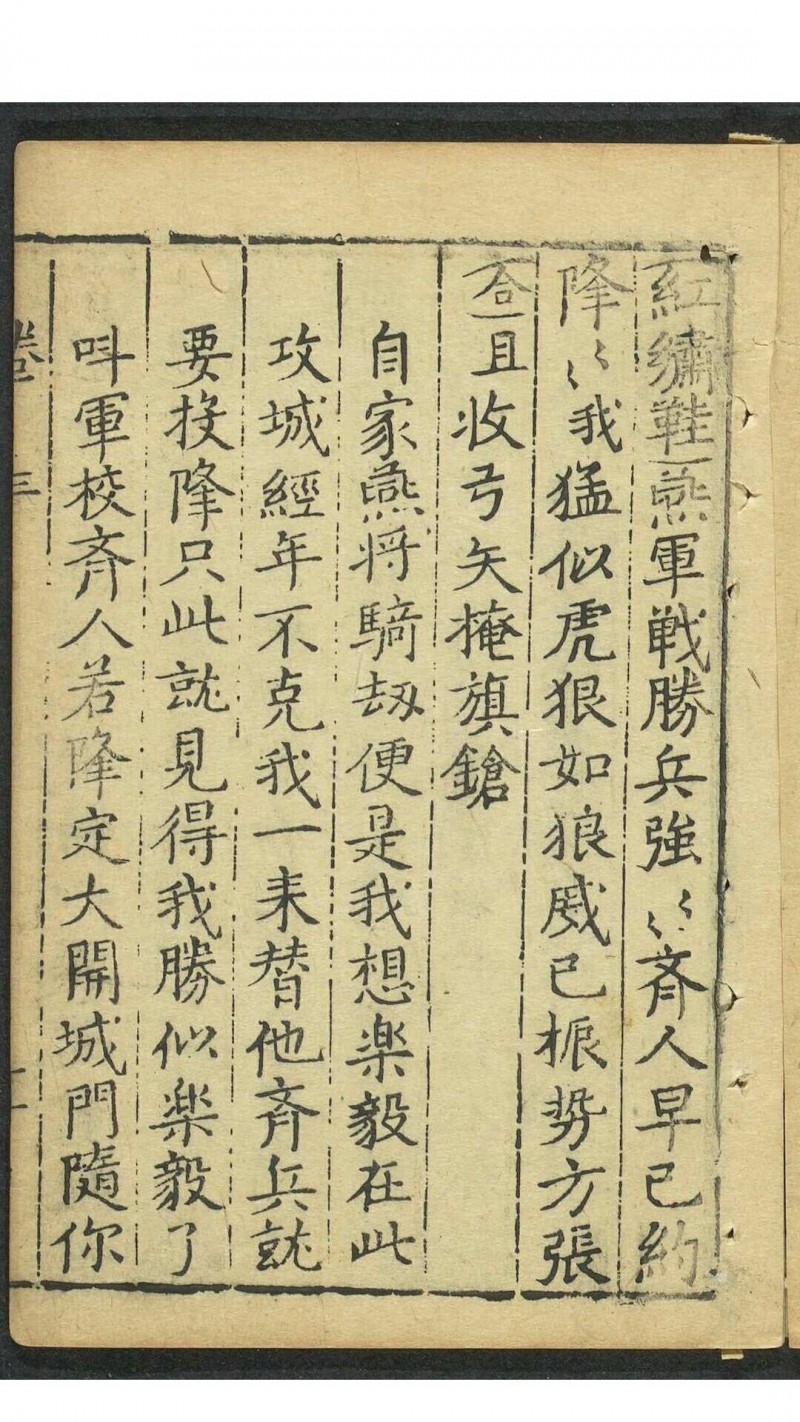 紅繡鞋燕軍戰勝兵強〻齊人早已約
降〻我猛似虎狠如狼威已振势方張
合且收弓矢掩旗鎗
自家燕将騎劫便是我想楽毅在此
攻城經年不克我一来替他齐兵就
要投降只此就見得我勝似楽毅了
呌軍校齐人若降定大開城門隨你
卷三